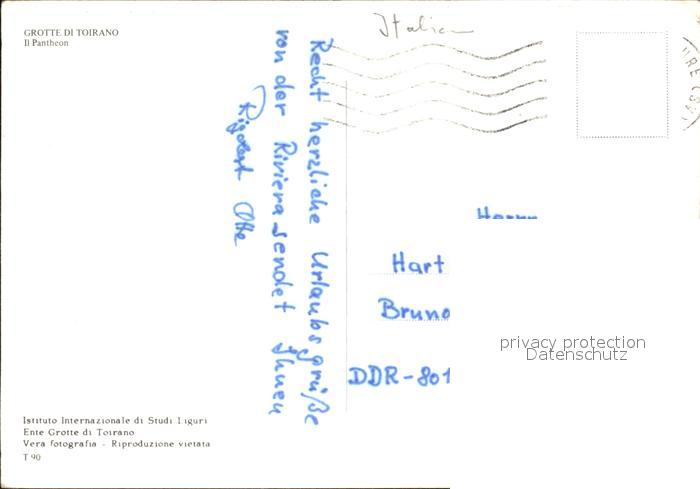 GROTTE DI TOIRANO
Il Pantheon
Italien
Recht herzliche Urlaubsgrüße
von der Riviera sendet Ihnen
Otte
Herrn
Hart
Bruno
DDR-801
privacy protection
Datenschutz
Istituto Internazionale di Studi Liguri
Ente Grotte di Toirano
Vera fotografia - Riproduzione vietata
T 90